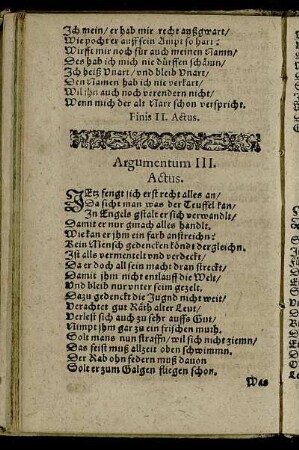 Ich mein/ er hab mir recht außgwart/
Wie pocht er auff sein Ampt so hart?
Wirfft mir noch für auch meinen Namn/
Des hab ich mich nie dürffen schämn/
Ich heiß Vnart/ vnd bleib Vnart/
Den Namen hab ich nie verkart/
Wil ihn auch noch verendern nicht/
Wenn mich der alt Narr schon verspricht.
Finis II. Actus.
Argumentum III.
Actus.
JEtz fengt sich erst recht alles an/
Da sicht man was der Teuffel kan/
In Engels gstalt er sich verwandlt/
Damit er nur gmach alles handlt.
Wie kan er ihm ein farb anstreichn?
Kein Mensch gedencken köndt dergleichn.
Ist alls vermentelt vnd verdeckt/
Da er doch all sein macht dran streckt/
Damit ihm nicht entlauff die Welt/
Vnd bleib nur vnter seim gezelt.
Dazu gedenckt die Jugnd nicht weit/
Verachtet gut Räth alter Leut/
Verlest sich auch zu sehr auffs Gut/
Nimpt ihm gar zu ein frischen muth.
Solt mans nun straffn/ wil sich nicht ziemn/
Das feist muß allzeit oben schwimmn.
Der Rab ohn federn muß dauon
Solt er zum Galgen fliegen schon.
Was